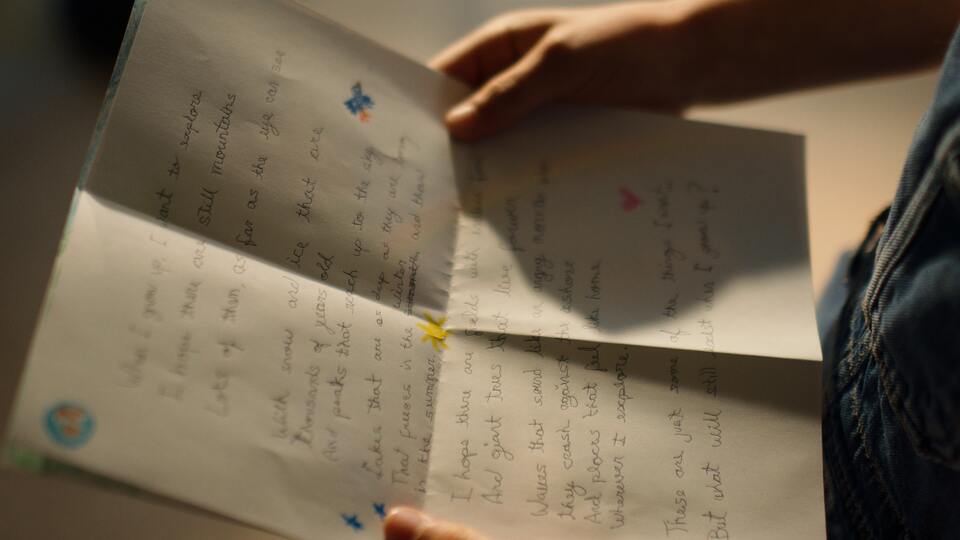 When I grow up, I want to explore
I hope there are still mountains
Lots of them, as far as the eye can see
With snow and ice that are
thousands of years old
And peaks that reach up to the sky
Lakes that are as deep as they are long
That freeze in the winter and thaw
in the summer.
I hope there are fields with
And giant trees that live forever
Waves that sound like an angry
they crash against the seashore
And places that feel like home
Wherever I explore.
These are just some of the things I want,
But what will still exist when I grow up?